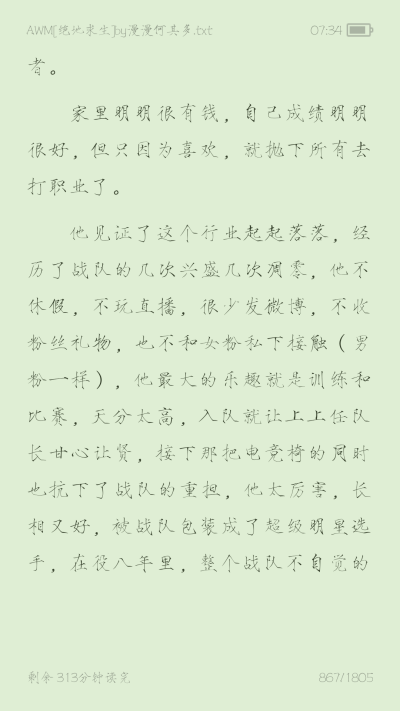 AWM[绝地求生]by漫漫何其多.txt 07:34
者。
家里明明很有钱，自己成绩明明
很好，但只因为喜欢，就抛下所有去
打职业了。
他见证了这个行业起起落落，经
历了战队的几次兴盛几次凋零，他不
休假，不玩直播，很少发微博，不收
粉丝礼物，也不和女粉私下接触（男
粉一样），他最大的乐趣就是训练和
比赛，天分太高，入队就让上上任队
长甘心让贤，接下那把电竞椅的同时
也抗下了战队的重担，他太厉害，长
相又好，被战队包装成了超级明星选
手，在役八年里，整个战队不自觉的
剩余 313分钟读完 867/1805